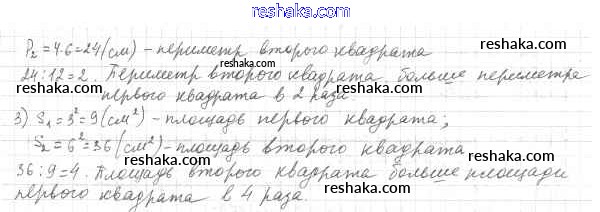 reshaka.com
P₂=4·6=24(см) – периметр второго квадрата
reshaka.com
24:12=2. Периметр второго квадрата больше периметра
первого квадрата в 2 раза.
reshaka.com
3) S₁=3²=9(см²) – площадь первого квадрата;
reshaka.com
S₂=6²=36(см²) – площадь второго квадрата
reshaka.com
36:9=4. Площадь второго квадрата больше площади
первого квадрата в 4 раза.
reshaka.com